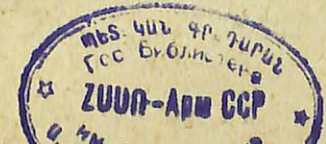 ՊԵՏ. ԿԱՆ ԳՐ. ԴԱՐԱՆ
Гос Библиотека
ՀՍՍՌ-Арм ССР